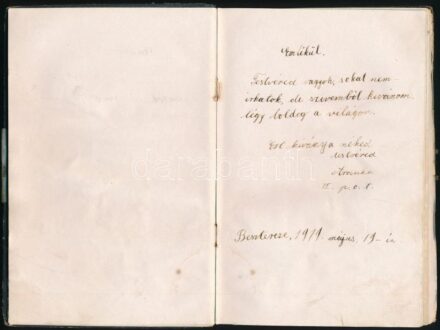 Emlékül.
Testvéred vagyok, sokat nem
irhatok, de szivemből kivánom
légy boldog a világon.
Ezt kivánja neked
testvéred
Aranka
II. p. o. t.
Beszterce, 1919 május, 19-én
darabanth